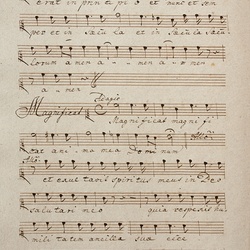 erat in prin ti pi o et nunc et sem
per et in sæcula et in sæcula sæcu
lorum amen a men a men
Adagio
Magnificat Magnificat magnifi
cat ani ma mea Dominum
et exultavit spiritus meus in Deo
salutari meo quia respexit hu
mili tatem ancillæ suæ ecce